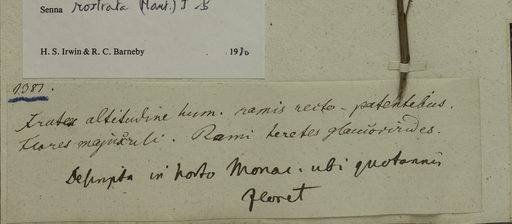 Senna rostrata (Mart.) I & B
H. S. Irwin & R. C. Barneby 1980
1381.
Frutex altitudine hum. ramis recto-patentibus.
Flores majusculi. Rami teretes glaucovirides.
Descripta in horto Monac. ubi quotannis
floret